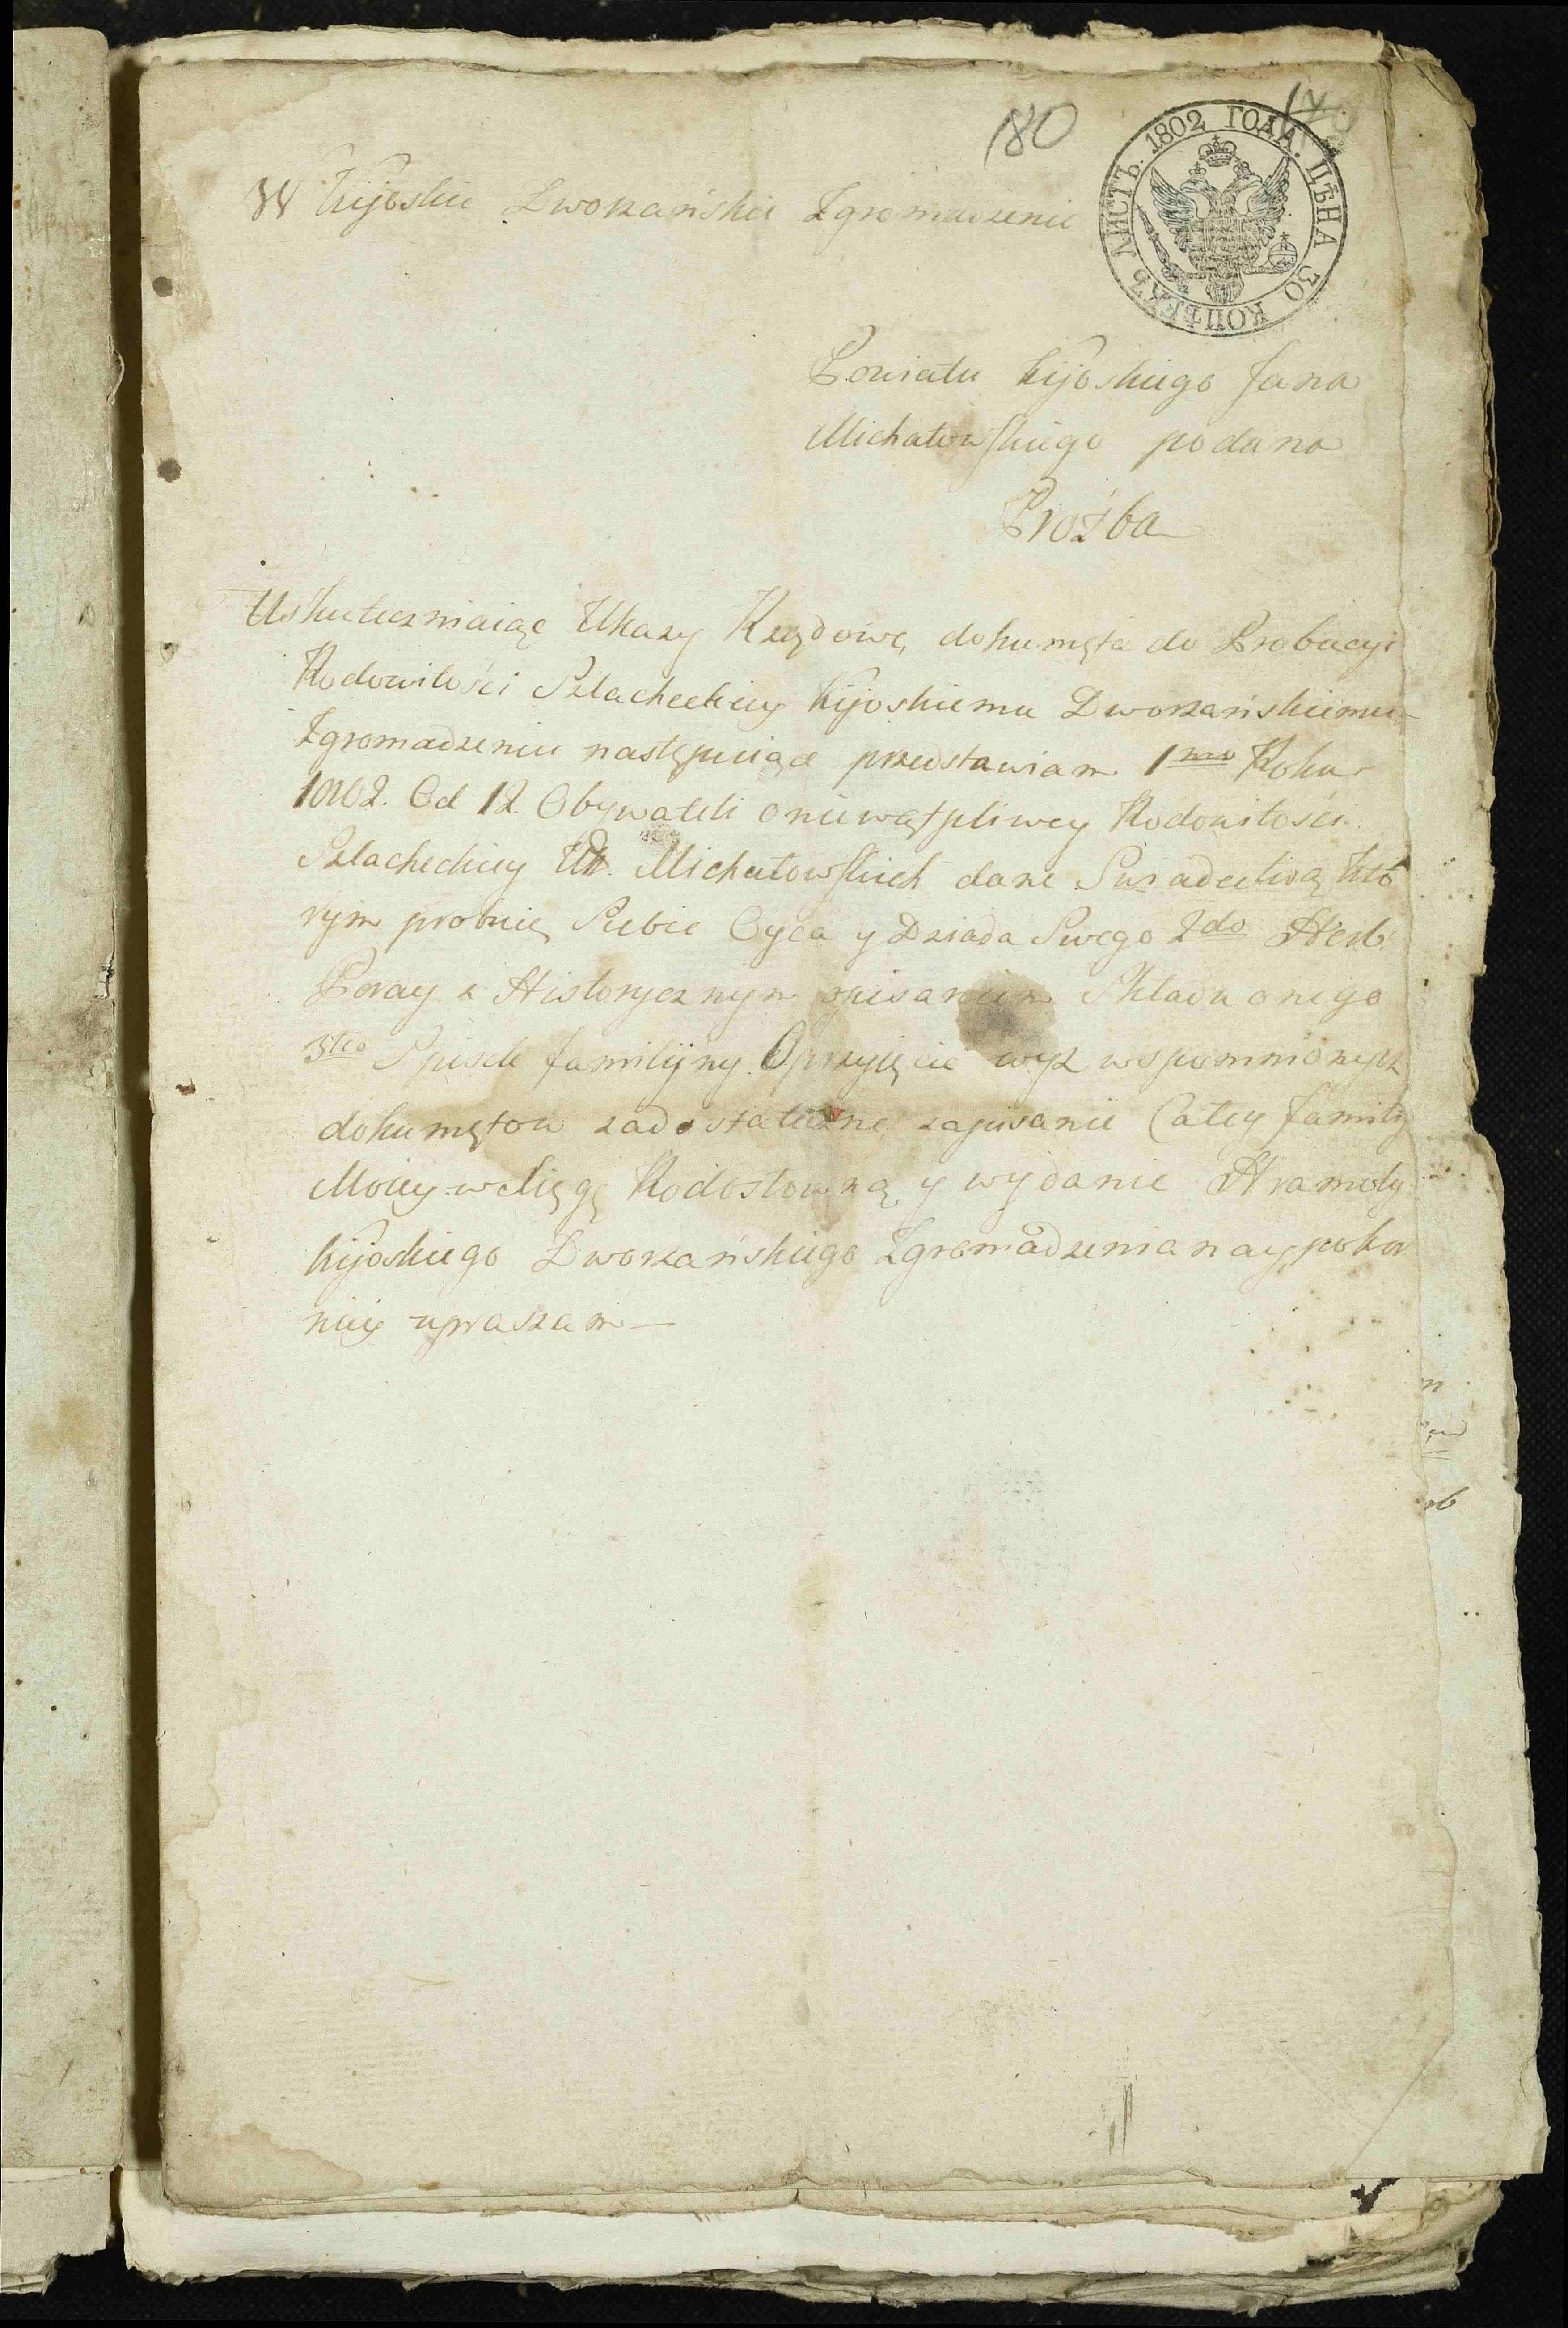 180
ЛИСТЪ. 1802 ГОДА. ЦѢНА 30 КОПѢЕКЪ
W Kijoskie Dworzańskie Zgromadzenie
Powiatu Kijoskiego Jana
Michałowskiego podana
Proźba
Uskuteczniaiąc Ukazy Rządowe, dokumęta do Probacyi
Rodowitości Szlacheckiey Kijoskiemu Dworzańskiemu
Zgromadzeniu następuiące przedstawiam 1mo Roku
1802. Od 12 Obywateli o niewątpliwey Rodowitości
Szlacheckiey Michałowskich dane Swiadectwą któ
rym probuię Siebie Oyca y Dziada Swego 2do Herb
Poray z Historycznym opisaniem Składu onego
3tio Spisek familijny. O przyięcie wyż wspomnionych
dokumętow za dostateczne, zapisanie Całey familÿ
Moiey w Xięgę Rodosłowną y wydanie Hramoty
Kijoskiego Dworzańskiego Zgromadzenia naypokor
niey upraszam—